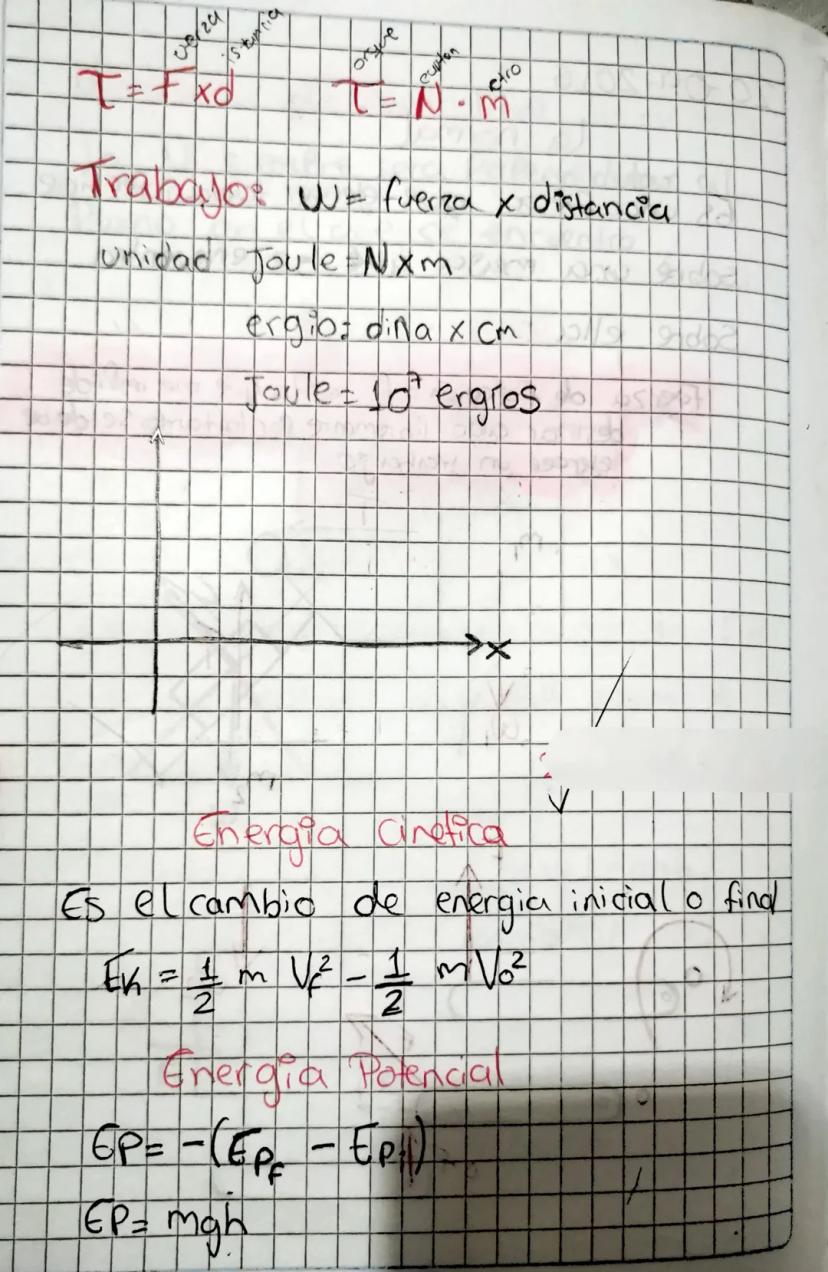 uerza istancia orque ewton etro
τ = F x d τ = N · m
Trabajo: W = fuerza x distancia
unidad Joule = N x m
ergio = dina x cm
Joule = 10⁷ ergios
x
Energia Cinetica
Es el cambio de energia inicial o final
Ek = 1/2 m Vf² - 1/2 m Vo²
Energia Potencial
EP = -(EPf - EPi)
EP = mgh